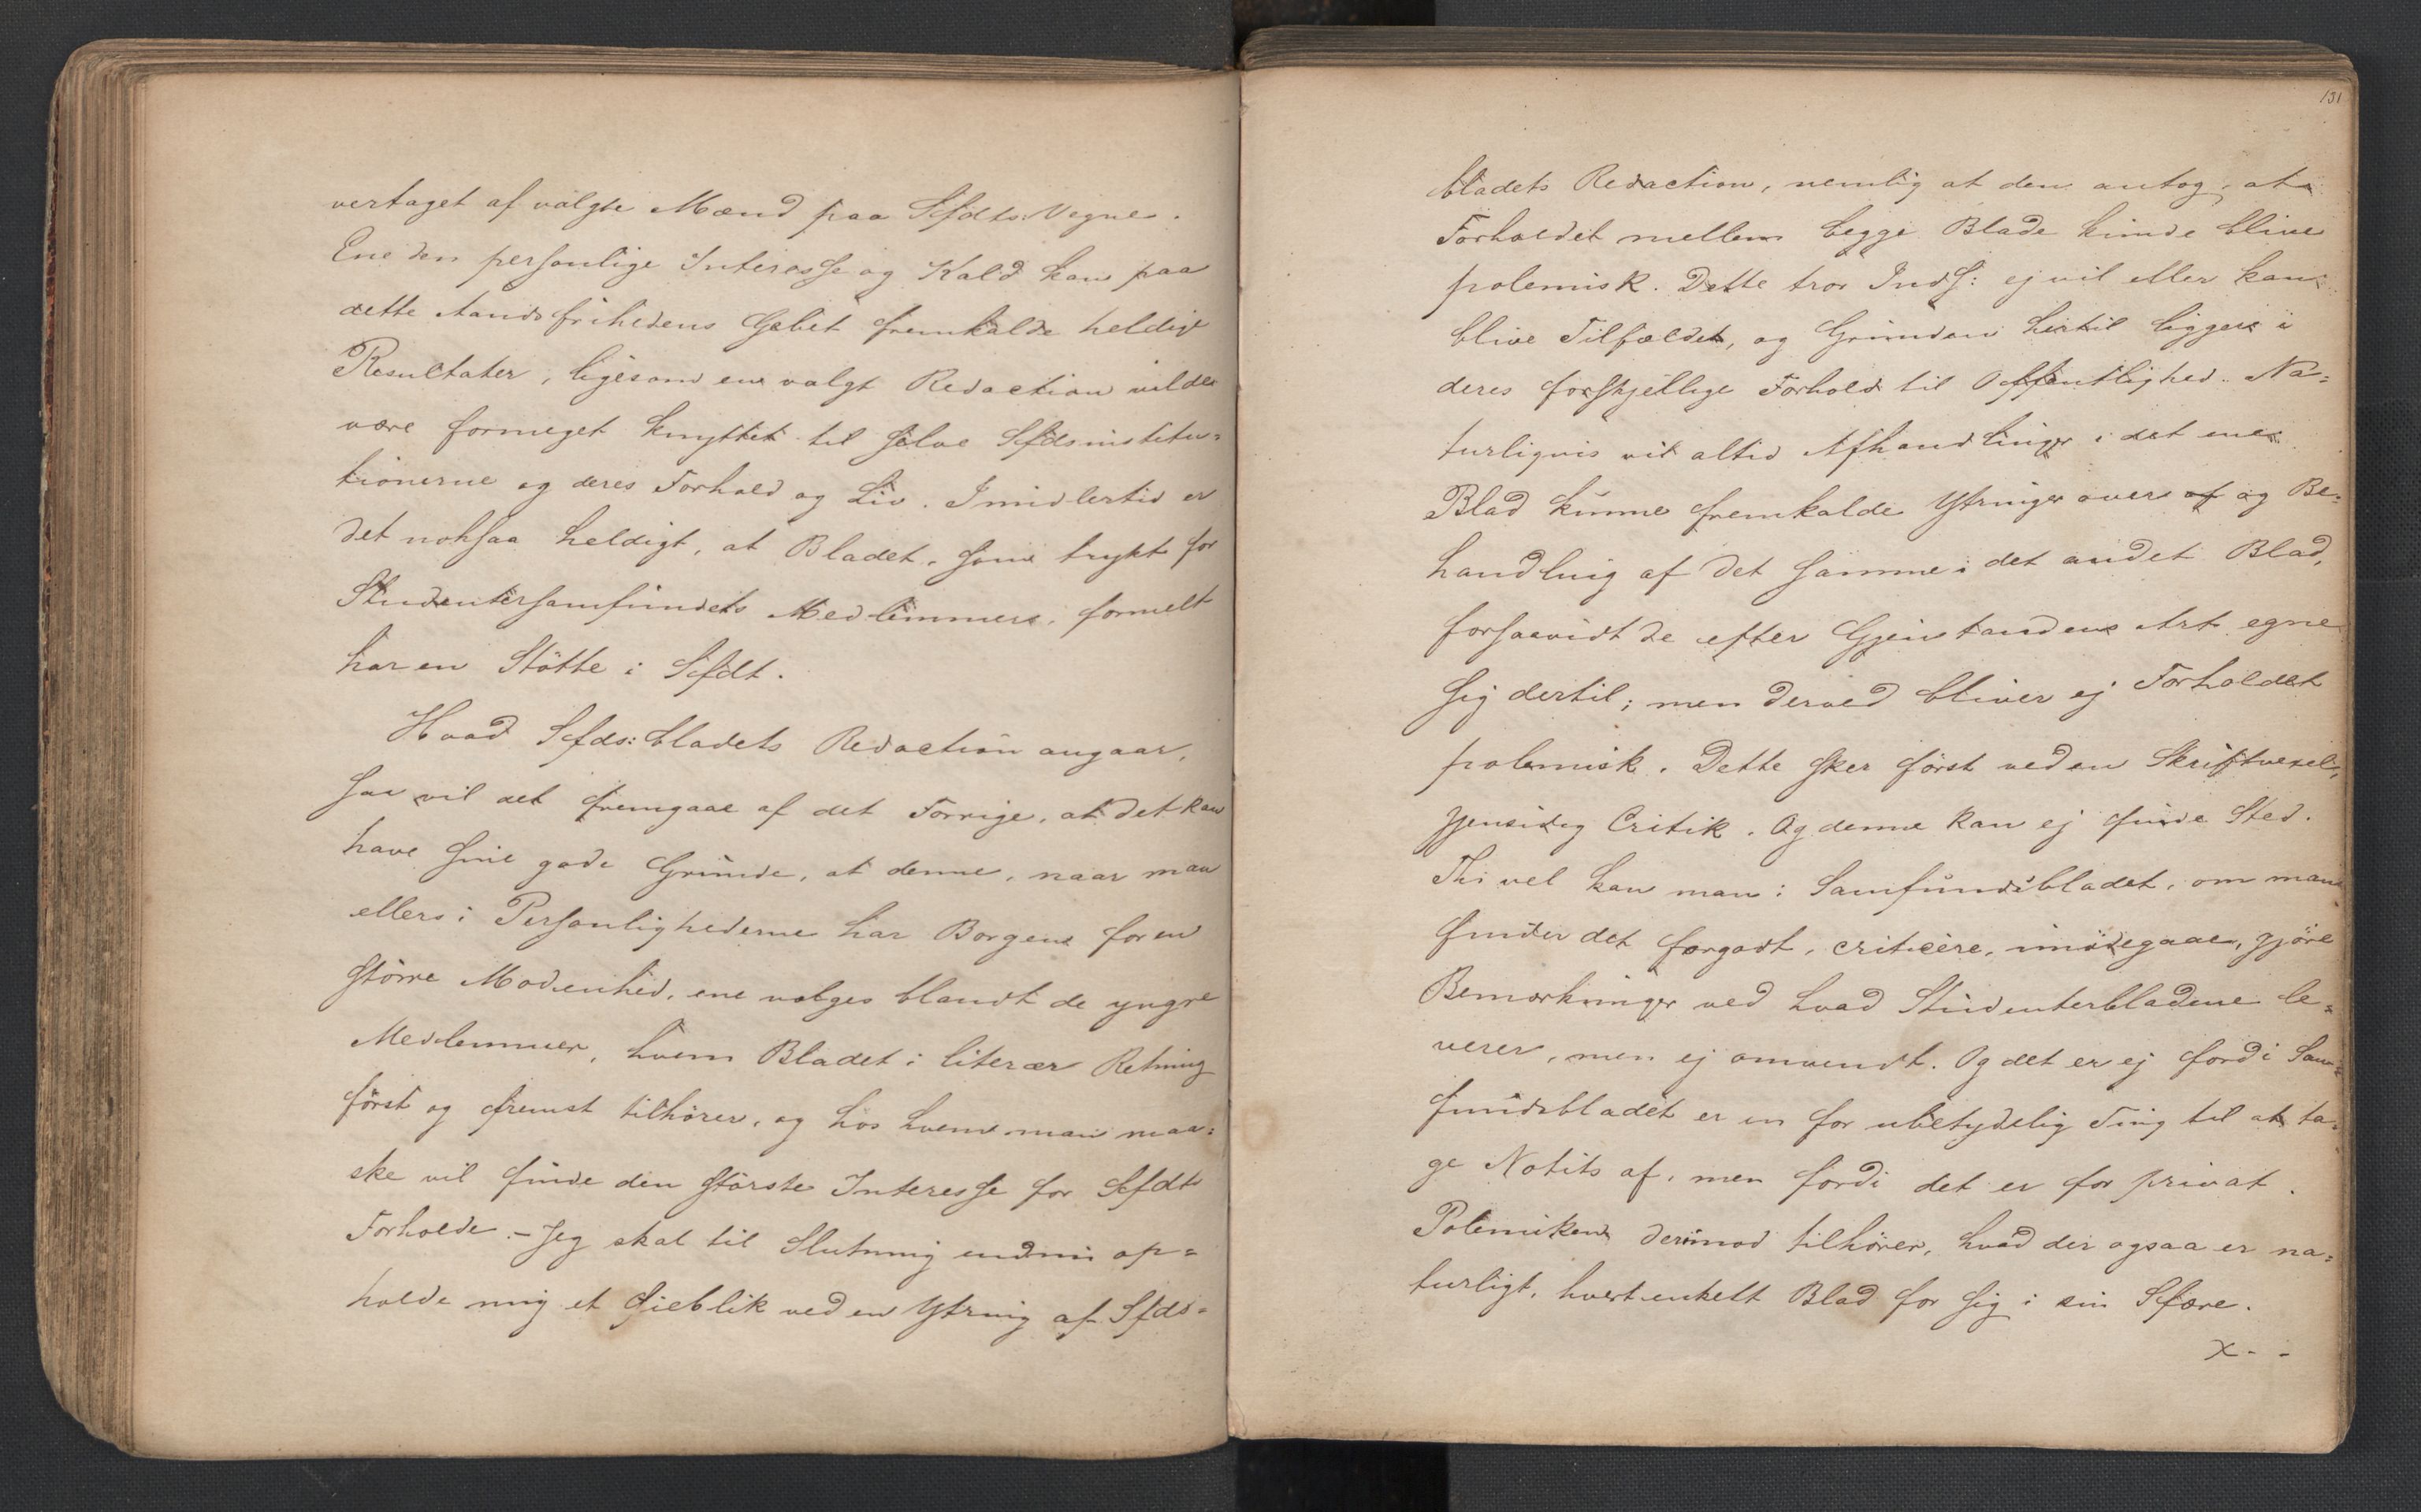 vertaget af valgte Mænd paa Sfdts: Vegne.
Ene den personlige Interesse og Kald kan paa
dette Aandsfrihedens Gebet fremkalde heldige
Resultater, ligesom en valgt Redaction vilde
være formeget knyttet til selve Sfdsinstitu=
tionerne og deres Forhold og Liv. Imidlertid er
det noksaa heldigt, at Bladet, som trykt for
Studentersamfundets Medlemmer, formelt
har en Støtte i Sfdt.
Hvad Sfds: bladets Redaction angaar,
saa vil det fremgaae af det Forrige, at det kan
have sine gode Grunde, at denne, naar man
ellers i Personlighederne har Borgen for en
større Modenhed, ene vælges blandt de yngre
Medlemmer, hvem Bladet i literær Retning
først og fremst tilhører, og hos hvem man maa=
ske vil finde den største Interesse for Sfdts
Forholde. – Jeg skal til Slutning endnu op=
holde mig et Øieblik ved en Ytring af Sfds=
131
bladets Redaction, nemlig at den antog, at
Forholdet mellem begge Blade kunde blive
polemisk. Dette tror Inds: ej vil eller kan
blive Tilfældet, og Grunden hertil ligger i
deres forskjellige Forhold til Offentlighed. Na=
turligvis vil altid Afhandlinger i det ene
Blad kunne fremkalde Ytringer over af og Be=
handling af det samme i det andet Blad,
forsaavidt de efter Gjenstandens Art egne
sig dertil; men derved bliver ej Forholdet
polemisk. Dette sker først ved en Skriftvexel,
gjensidig Critik. Og denne kan ej finde Sted.
Thi vel kan man i Samfundsbladet, om man
finder det forgodt, criticere, imødegaae, gjøre
Bemærkninger ved hvad Studenterbladene le=
verer, men ej omvendt. Og det er ej fordi Sam=
fundsbladet er en for ubetydelig Ting til at ta=
ge Notits af, men fordi det er for privat.
Polemiken derimod tilhører, hvad der ogsaa er na=
turligt, hvert enkelt Blad for sig i sin Sfære.
x - -